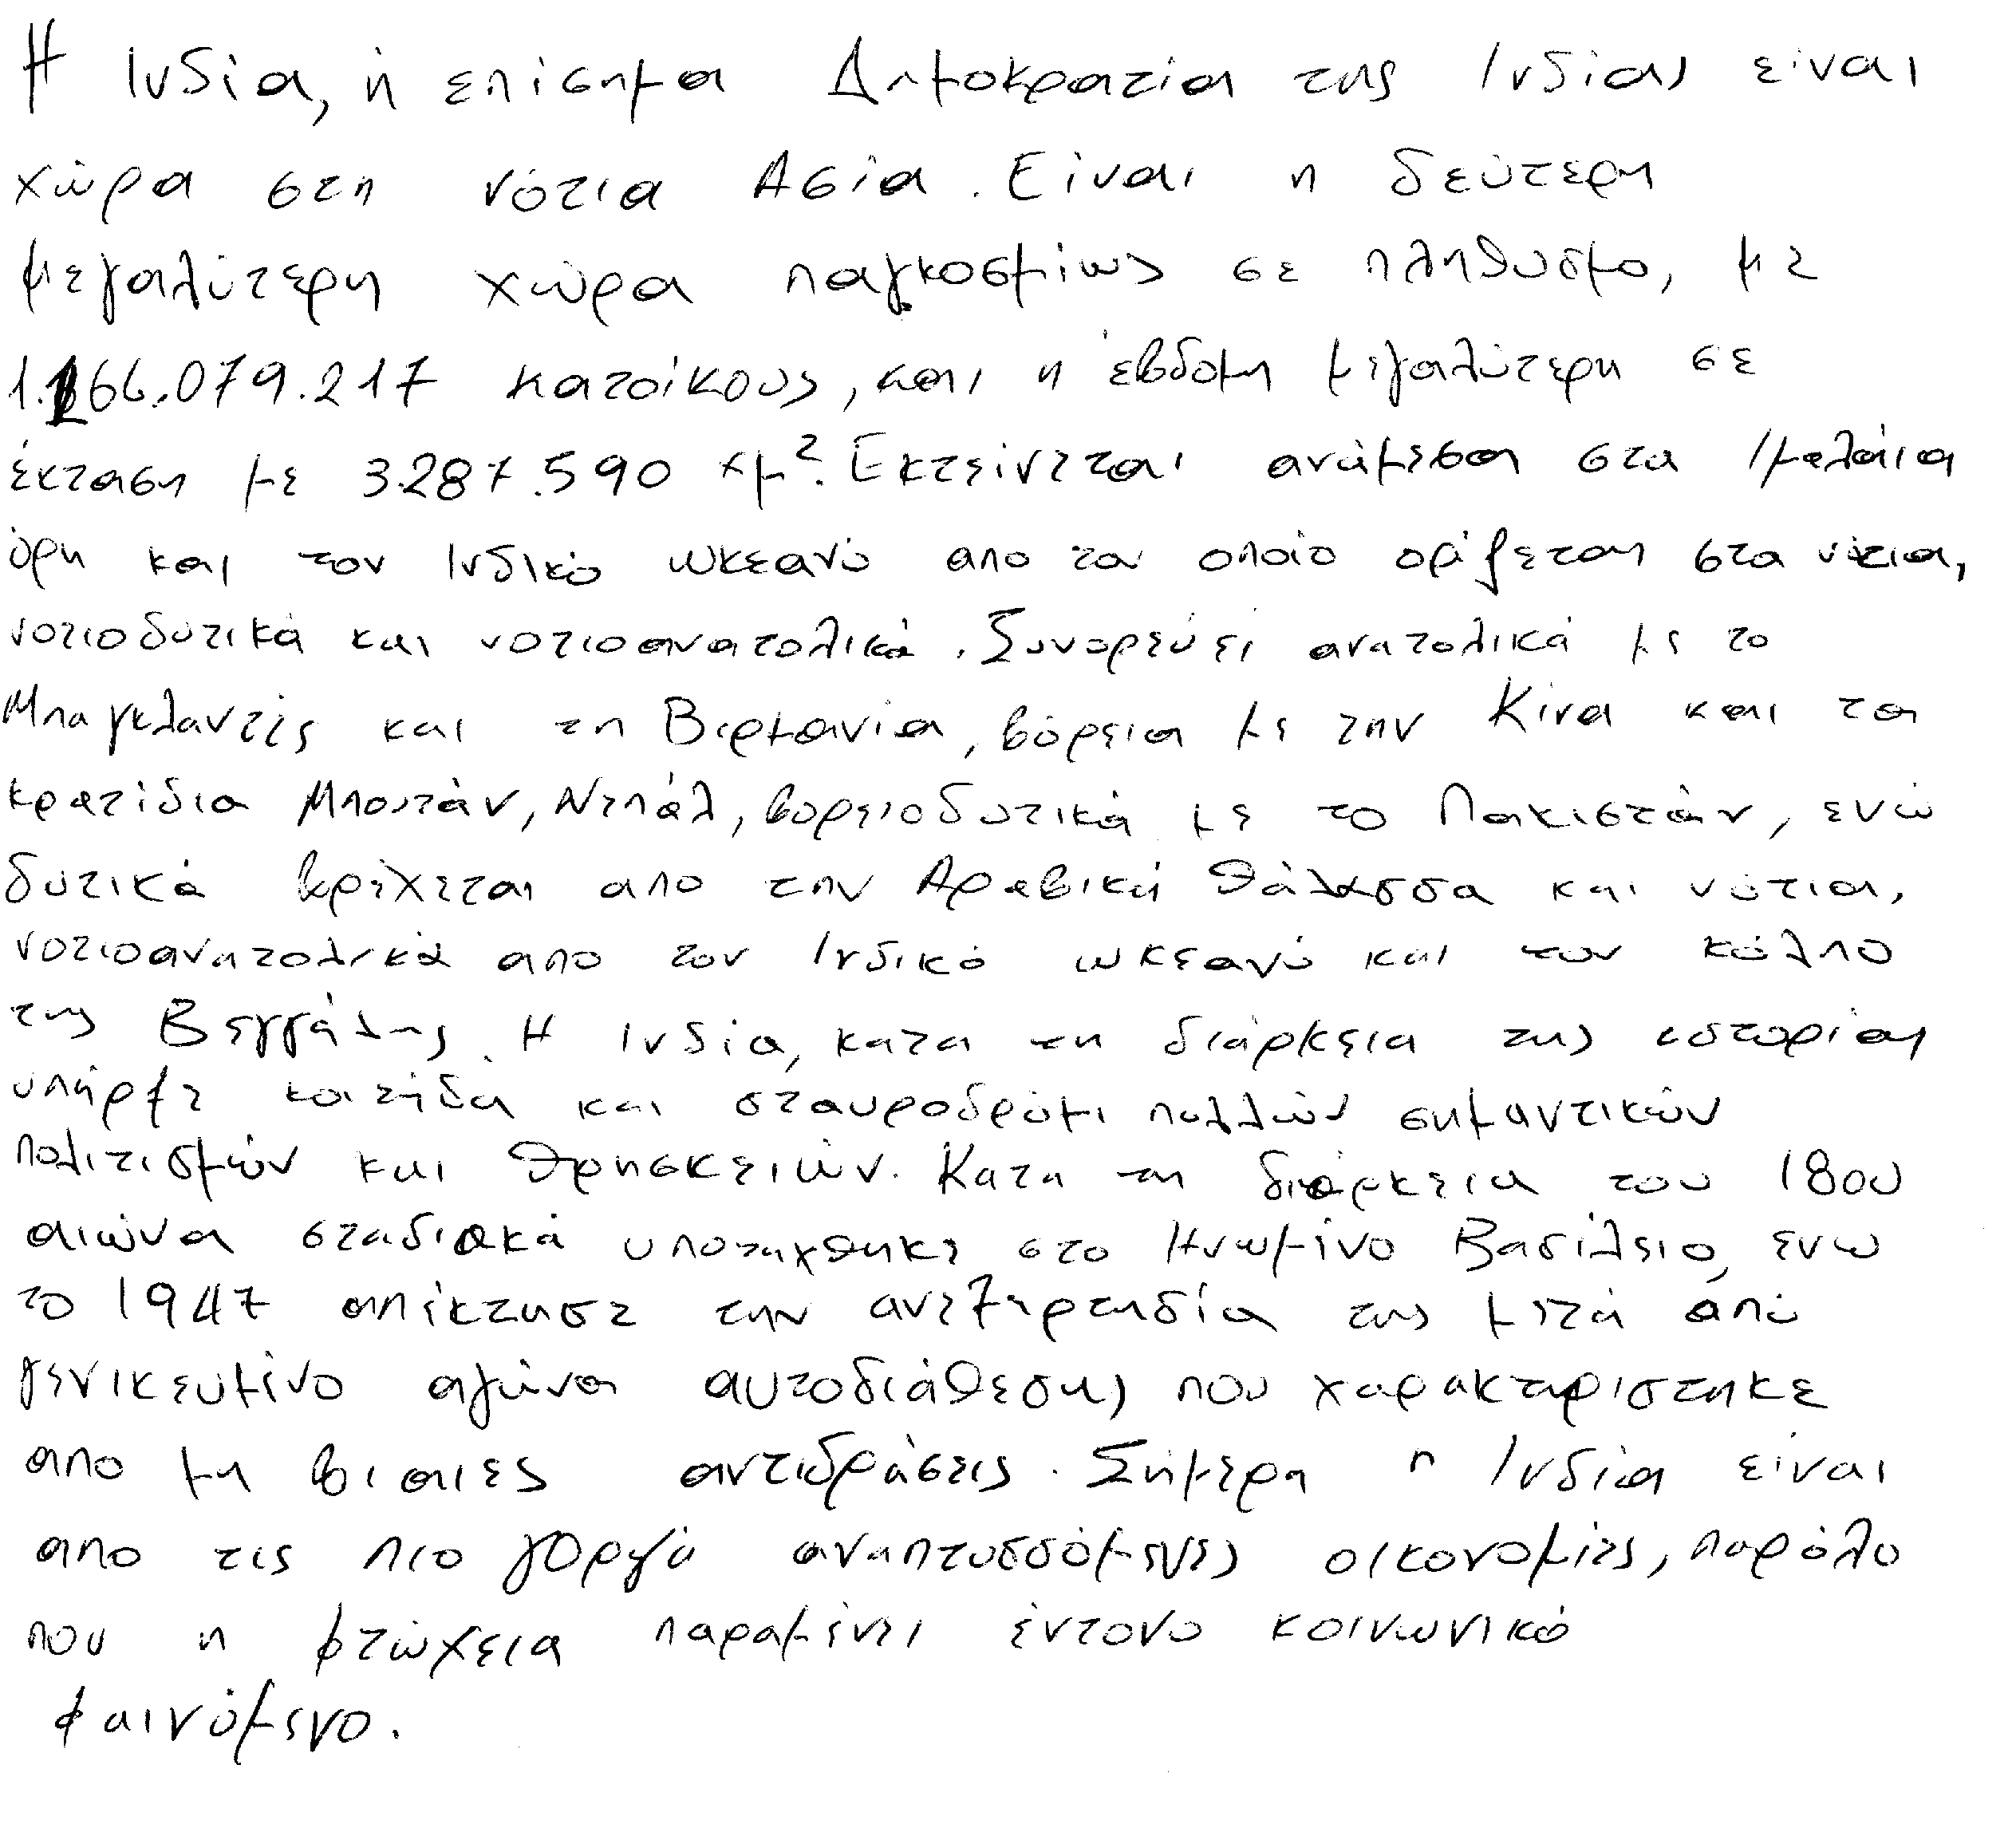 Η Ινδία, ή επίσημα Δημοκρατία της Ινδίας είναι
χώρα στη νότια Ασία. Είναι η δεύτερη
μεγαλύτερη χώρα παγκοσμίως σε πληθυσμο, με
1.166.079.217 κατοίκους, και η έβδομη μεγαλύτερη σε
έκταση με 3.287.590 χμ². Εκτείνεται ανάμεσα στα Ιμαλάια
όρη και τον Ινδικό ωκεανό απο τον οποίο ορίζεται στα νότια,
νοτιοδυτικά και νοτιοανατολικά. Συνορεύει ανατολικά με το
Μπαγκλαντές και τη Βιρμανία, βόρεια με την Κίνα και τα
κρατίδια Μπουτάν, Νεπάλ, βορειοδυτικά με το Πακιστάν, ενώ
δυτικά βρέχεται απο την Αραβική θάλασσα και νότια,
νοτιοανατολικά απο τον Ινδικό ωκεανό και τον κόλπο
της Βεγγάλης. Η Ινδία, κατα τη διάρκεια της ιστορίας
υπήρξε κοιτίδα και σταυροδρόμι πολλών σημαντικών
πολιτισμών και θρησκειών. Κατα τη διάρκεια του 18ου
αιώνα σταδιακά υποτάχθηκε στο Ηνωμένο Βασίλειο, ενω
το 1947 απέκτησε την ανεξαρτησία της μετά από
γενικευμένο αγώνα αυτοδιάθεσης που χαρακτηρίστηκε
απο μη βιαιες αντιδράσεις. Σήμερα η Ινδία είναι
απο τις πιο γοργά αναπτυσσόμενες οικονομίες, παρόλο
που η φτώχεια παραμένει έντονο κοινωνικό
φαινόμενο.